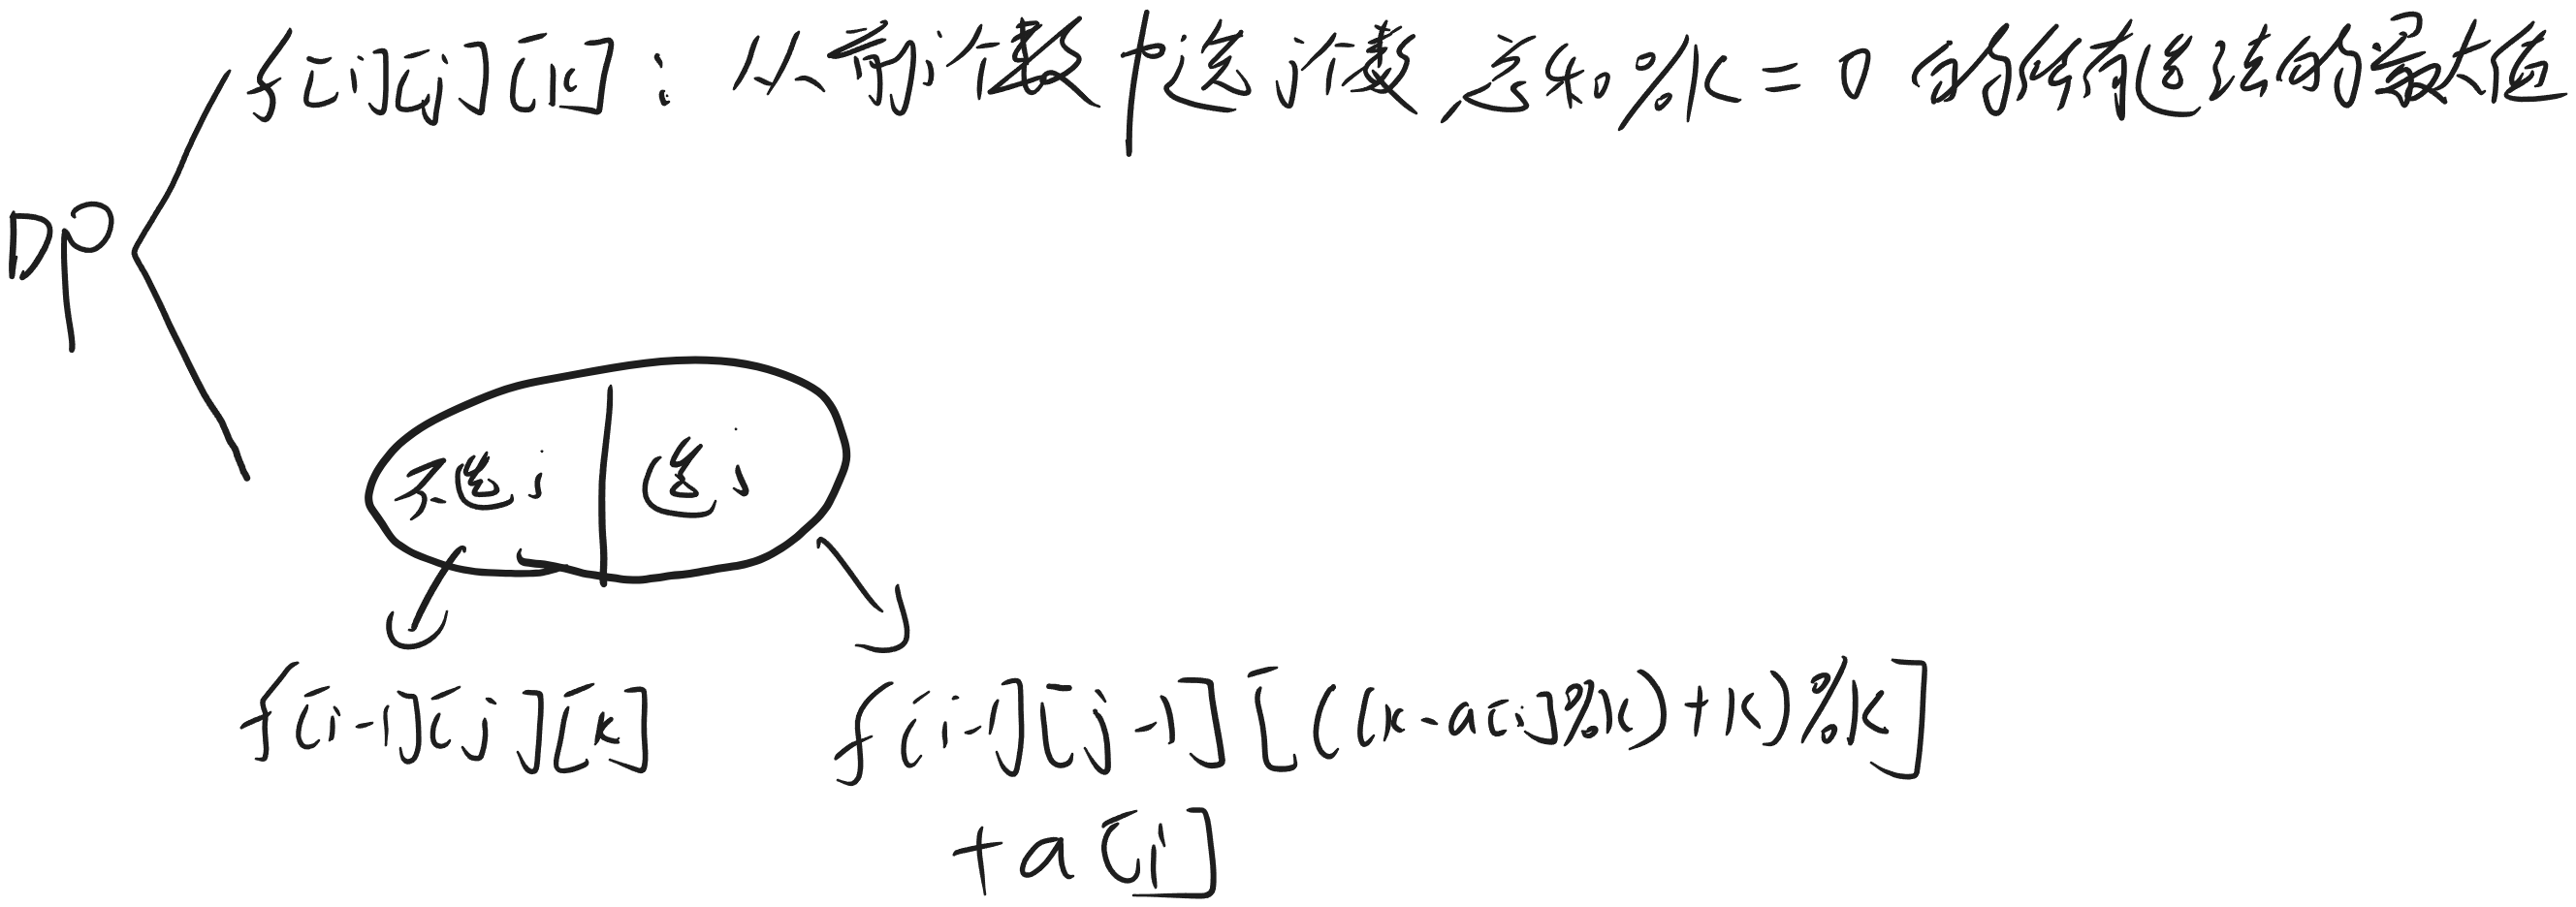 f[i][j][k]：从前i个数中选j个数 总和%K=0 的所有选法的最大值
DP
不选i 选i
f[i-1][j][k] f[i-1][j-1][((k-a[i]%K)+K)%K]
+a[i]